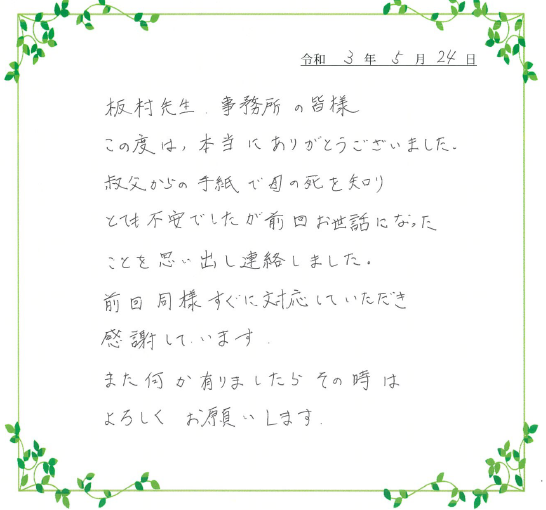 令和 3 年 5 月 24 日
板村先生、事務所の皆様
この度は、本当にありがとうございました。
叔父からの手紙で母の死を知り
とても不安でしたが前回お世話になった
ことを思い出し連絡しました。
前回同様すぐに対応していただき
感謝しています。
また何か有りましたらその時は
よろしくお願いします。